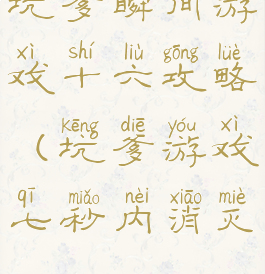 坑爹瞬间游
xì shí liù gōng lüè
戏十六攻略
kēng diē yóu xì
（坑爹游戏
qī miǎo nèi xiāo miè
七秒内消灭